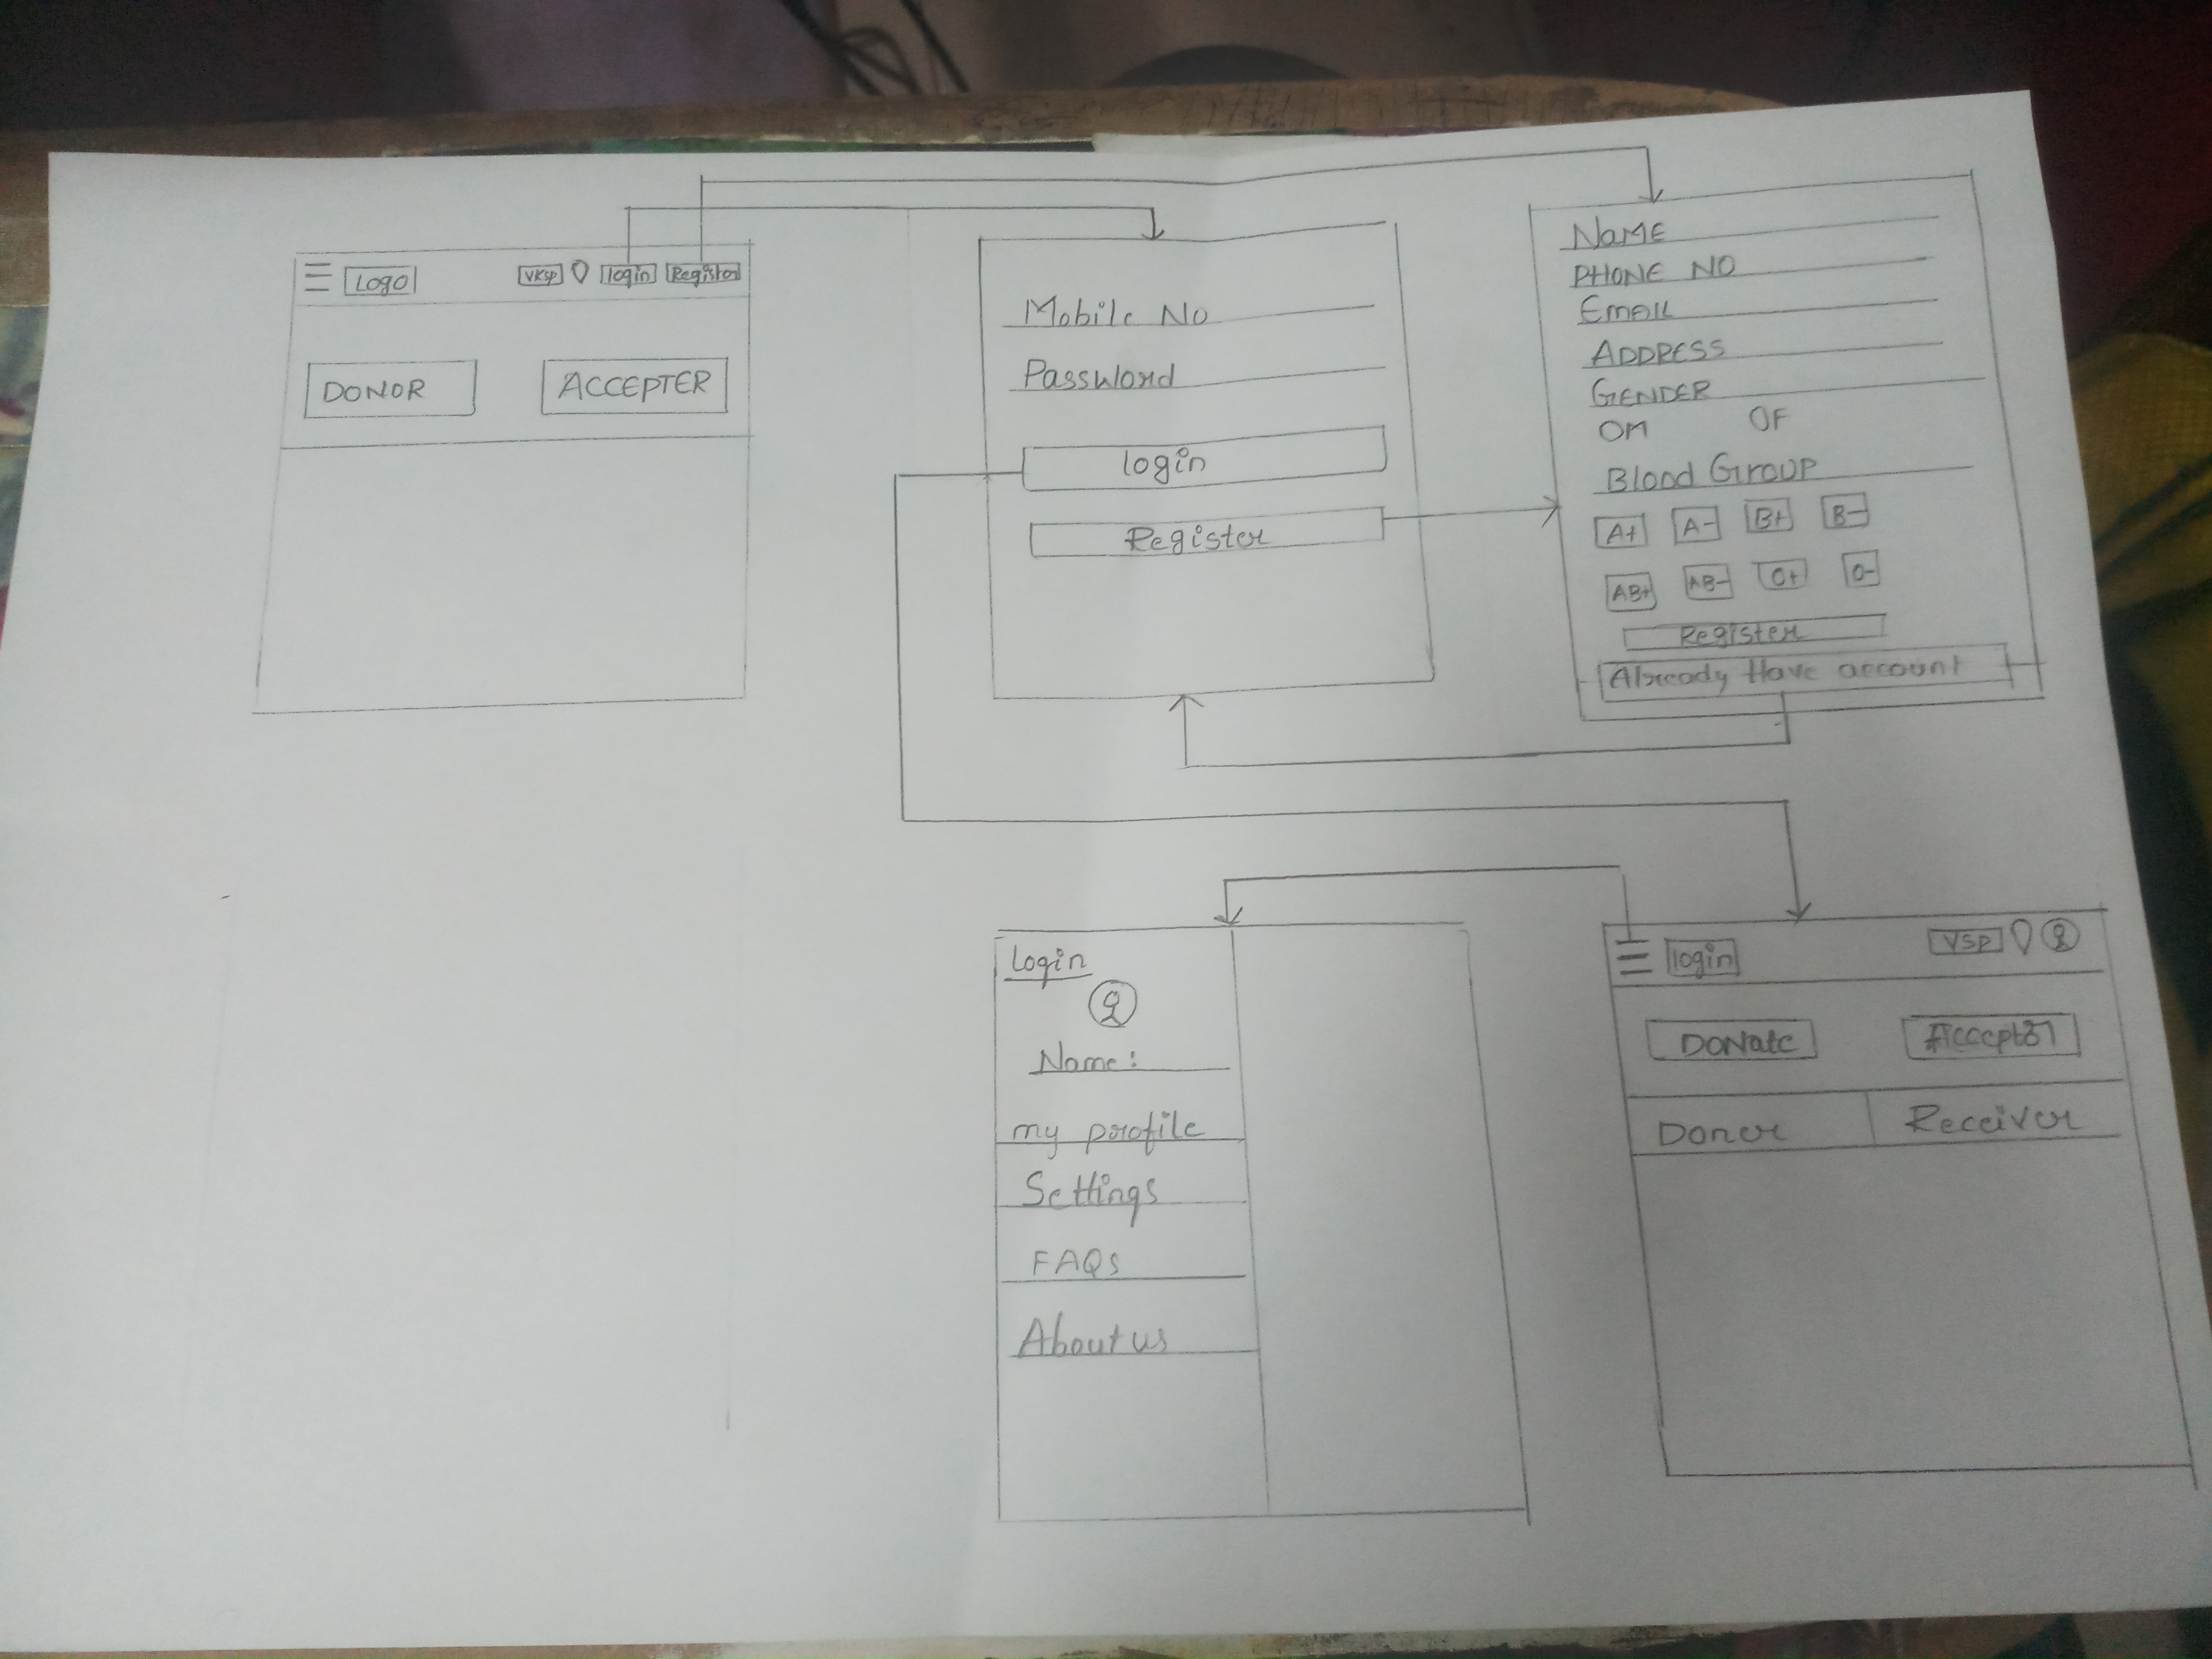 Logo VKsp login Register
DONOR ACCEPTER
Mobile No
Password
login
Register
NAME
PHONE NO
EMAIL
ADDRESS
GENDER
OM OF
Blood Group
A+ A- B+ B-
AB+ AB- O+ O-
Register
Already Have account
Login
Name:
my profile
Settings
FAQs
About us
login VSP
DONate Acceptor
Doner Receiver